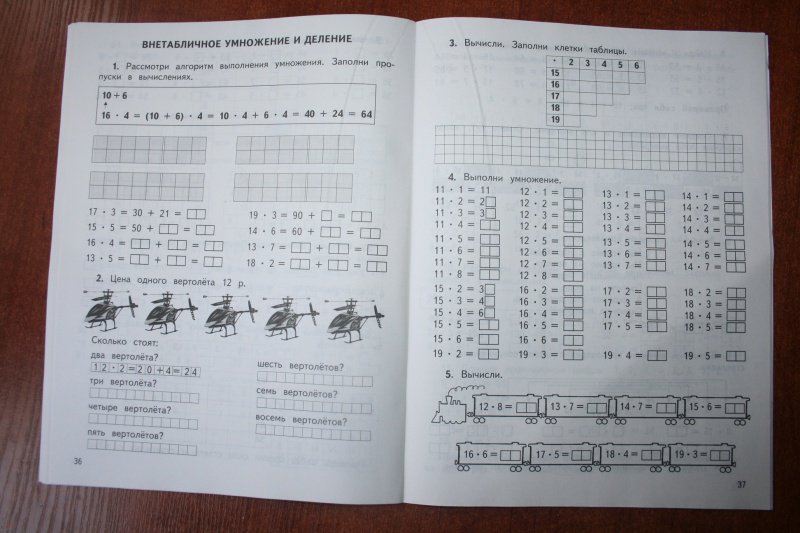 ВНЕТАБЛИЧНОЕ УМНОЖЕНИЕ И ДЕЛЕНИЕ
1. Рассмотри алгоритм выполнения умножения. Заполни про-
пуски в вычислениях.
10 + 6
16 · 4 = (10 + 6) · 4 = 10 · 4 + 6 · 4 = 40 + 24 = 64
17 · 3 = 30 + 21 =
15 · 5 = 50 + =
16 · 4 = + =
13 · 5 = + =
19 · 3 = 90 + =
14 · 6 = 60 + =
13 · 7 = + =
18 · 2 = + =
2. Цена одного вертолёта 12 р.
Сколько стоят:
два вертолёта?
12·2=20+4=24
три вертолёта?
четыре вертолёта?
пять вертолётов?
шесть вертолётов?
семь вертолётов?
восемь вертолётов?
36
3. Вычисли. Заполни клетки таблицы.
· 2 3 4 5 6
15
16
17
18
19
4. Выполни умножение.
11 · 1 = 11
11 · 2 = 2
11 · 3 = 3
11 · 4 =
11 · 5 =
11 · 6 =
11 · 7 =
11 · 8 =
12 · 1 =
12 · 2 =
12 · 3 =
12 · 4 =
12 · 5 =
12 · 6 =
12 · 7 =
12 · 8 =
13 · 1 =
13 · 2 =
13 · 3 =
13 · 4 =
13 · 5 =
13 · 6 =
13 · 7 =
14 · 1 =
14 · 2 =
14 · 3 =
14 · 4 =
14 · 5 =
14 · 6 =
14 · 7 =
15 · 2 = 3
15 · 3 = 4
15 · 4 = 6
15 · 5 =
15 · 6 =
16 · 2 =
16 · 3 =
16 · 4 =
16 · 5 =
16 · 6 =
17 · 2 =
17 · 3 =
17 · 4 =
17 · 5 =
18 · 2 =
18 · 3 =
18 · 4 =
18 · 5 =
19 · 2 =
19 · 3 =
19 · 4 =
19 · 5 =
5. Вычисли.
12 · 8 =
13 · 7 =
14 · 7 =
15 · 6 =
16 · 6 =
17 · 5 =
18 · 4 =
19 · 3 =
37